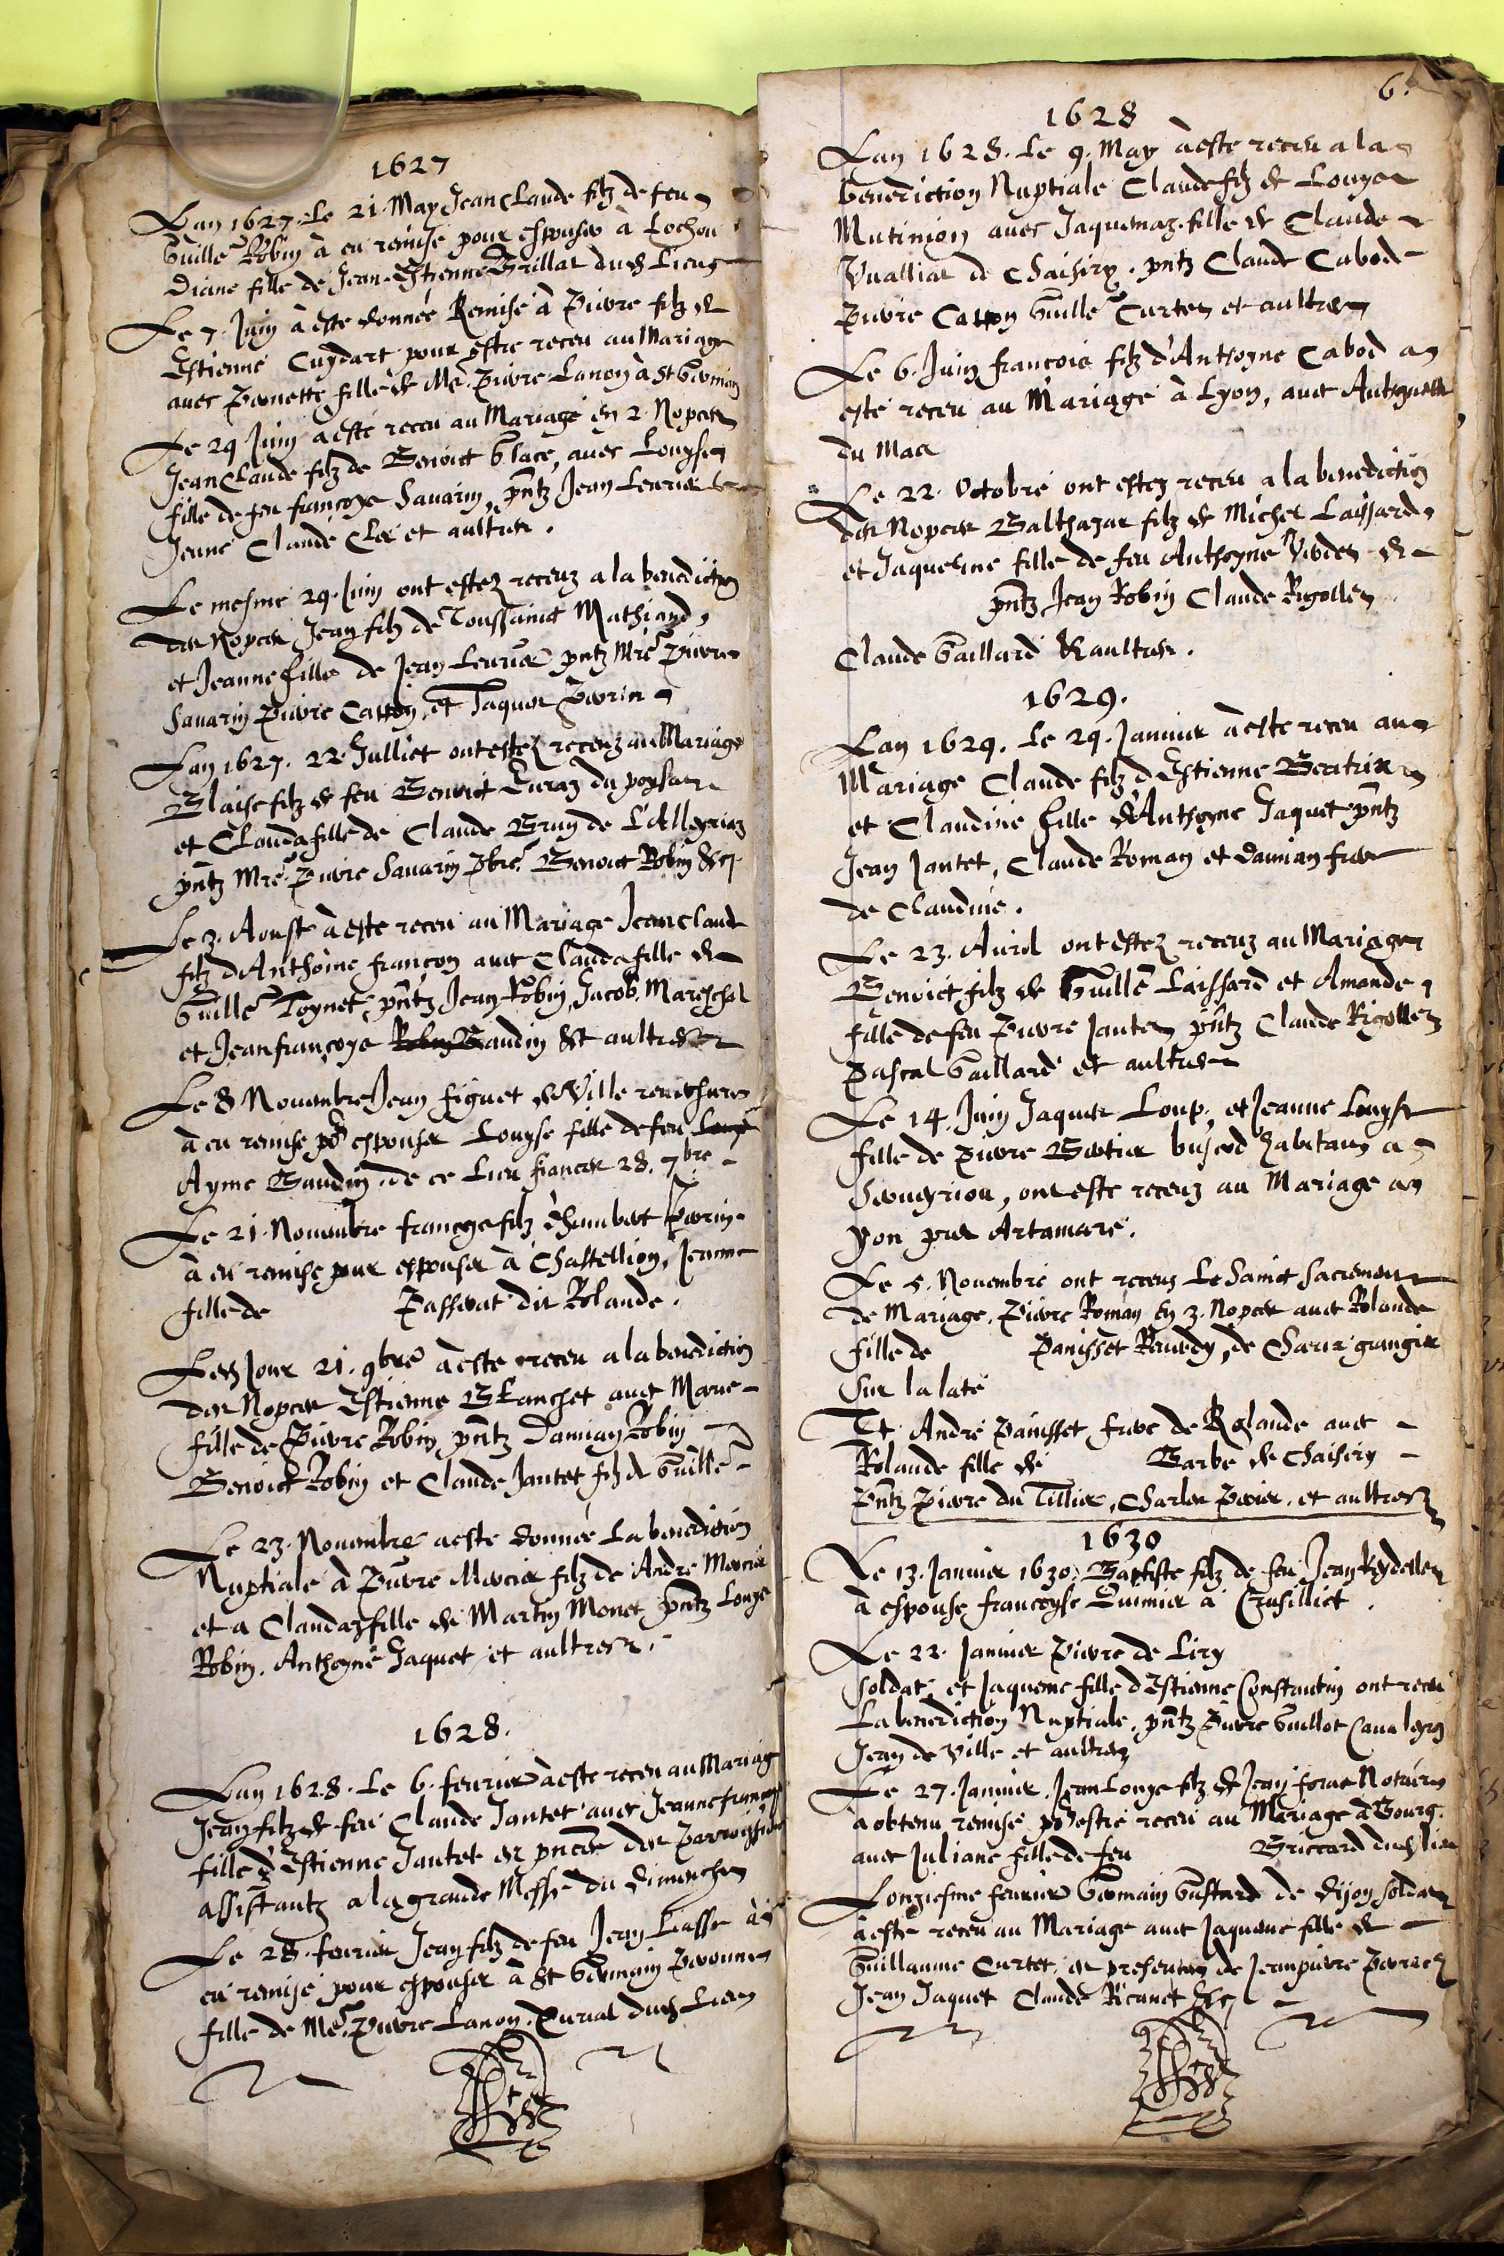 1627
Lan 1627. Le 21. May Jean Claude filz de feu
Guille Robin à eu remise pour espouser à Lochou
Diane fille de Jean Estienne Brillat dud Lieug
Le 7. Juin à este donnée Remise à Pierre filz de
Estienne Cuydart pour estre receu au Mariage
avec Pernette fille de Me. Pierre Lanon à St Germain
Le 29 Juin a esté receu au Mariage en 2. Nopces
Jean Claude filz de Benoict Glace, avec Louyse
fille de feu françoys Savarin, pntz Jean Leurier
Jenne Claude et aultres.
Le mesme 29. Juin ont estez receuz a la benediction
des Nopces Jean filz de Toussainct Mathiand
et Jeanne fille de Jean Leurier pntz Mre Pierre
Savarin Pierre Catton, et Jaques Perrin
Lan 1627. 22. Julliet ont estez receuz au Mariage
Blaise filz de feu Benoict du
et Clauda fille de Claude Brun de
pntz Mre. Pierre Savarin Pbre. Benoict Robin &c.
Le 3. Aoust à este receu au Mariage Jean Claude
filz dAnthoine françon avec Clauda fille de
Guille Toynet, pntz Jean Robin, Jacob Mareschal
et Jean françoys Robin Gaudin & aultres
Le 8 Novembre Jean figuet de Ville
à eu remise pr espouser Louyse fille de feu Louys
Ayme Gaudin de ce Lieu 28. 7bre
Le 21. Novembre françoys filz dhumbert Perrin
à eu remise pour espouser à Chastellion, Jeanne
fille de Passerat dit Rolande.
Led Jour 21. 9bre à este receu a la benediction
des Nopces Estienne Blanchet avec Marie
fille de Pierre Robin, pntz Damian Robin
Benoict Robin et Claude Jantet filz de Guille
Le 23. Novembre a este donnée La benediction
Nuptiale à Pierre Mercier filz de André Mercier
et a Clauda fille de Martin Monet, pntz Louys
Robin. Anthoyne Jaquet, et aultres.
1628.
Lan 1628. Le 6. fevrier à este receu au Mariage
Jean filz de feu Claude Jantet avec Jeanne françoyse
fille dEstienne Jantet en pnce des
assistantz a la grande Messe du dimenche
Le 28. fevrier Jean filz de feu Jean Lasse à
eu remise pour espouser à St Germain Peronne
fille de Me. Pierre Lanon. Curial dud Lieu
6.
1628
Lan 1628. Le 9. May à este receu a la
benediction Nuptiale Claude filz de Louys
Mutinion avec Jaquemaz fille de Claude
Vualliat de Chaisiry. pntz Claude Cabode
Pierre Catton Guille Curtet et aultres
Le 6. Juin françois filz d'Anthoyne Cabod a
esté receu au Mariage à Lyon, avec Anthoynette
du Mas
Le 22. Octobre ont estez receu a la benediction
des Nopces Balthazar filz de Michel Laissard
et Jaquesme fille de feu Anthoyne
pntz Jean Robin Claude Rigollet
Claude Gaillard & aultres.
1629.
Lan 1629. Le 29. Janvier à este receu au
Mariage Claude filz d'Estienne Beatrix
et Claudine fille d'Anthoyne Jaquet pntz
Jean Jantet, Claude Roman et Damian frere
de Claudine.
Le 23. Avril ont estez receuz au Mariage
Benoict filz de Guille Laissard et Amande
fille de feu Pierre Jantet pntz Claude Rigollet
Pascal Gaillard et aultres
Le 14. Juin Jaques Loup, et Jeanne Louyse
fille de Pierre Bertier habitans a
ont este receuz au Mariage a
Yon pres Artamare.
Le 5. Novembre ont receuz Le Sainct Sacrement
de Mariage, Pierre Roman en 3. Nopces avec Rolande
fille de Panisset de granger
sur la laté
Et André Panisset frere de Rolande avec
Rolande fille de Barbe de Chaisiry
Pntz Pierre du Tillier, Charles Perier. et aultres
1630
Le 13. Janvier 1630, Baptiste filz de feu Jean
à espousé françoyse à Crusilliet.
Le 22. Janvier Pierre de Liry
soldat, et Jaqueme fille dEstienne Constantin ont receu
La benediction Nuptiale, pntz Pierre Guillot
Jean de Ville et aultres
Le 27. Janvier. Jean Louys filz de Jean forat Notaire
à obtenu remise pr estre receu au Mariage à Bourg.
avec Juliane fille de feu Briccard dud lieu
Lonziesme fevrier Germain Gustard de Dijon soldat
à esté receu au Mariage avec Jaqueme fille de
Guillaume Curtet, en presence de Jean pierre Perrier
Jean Jaquet Claude Ricanet &c